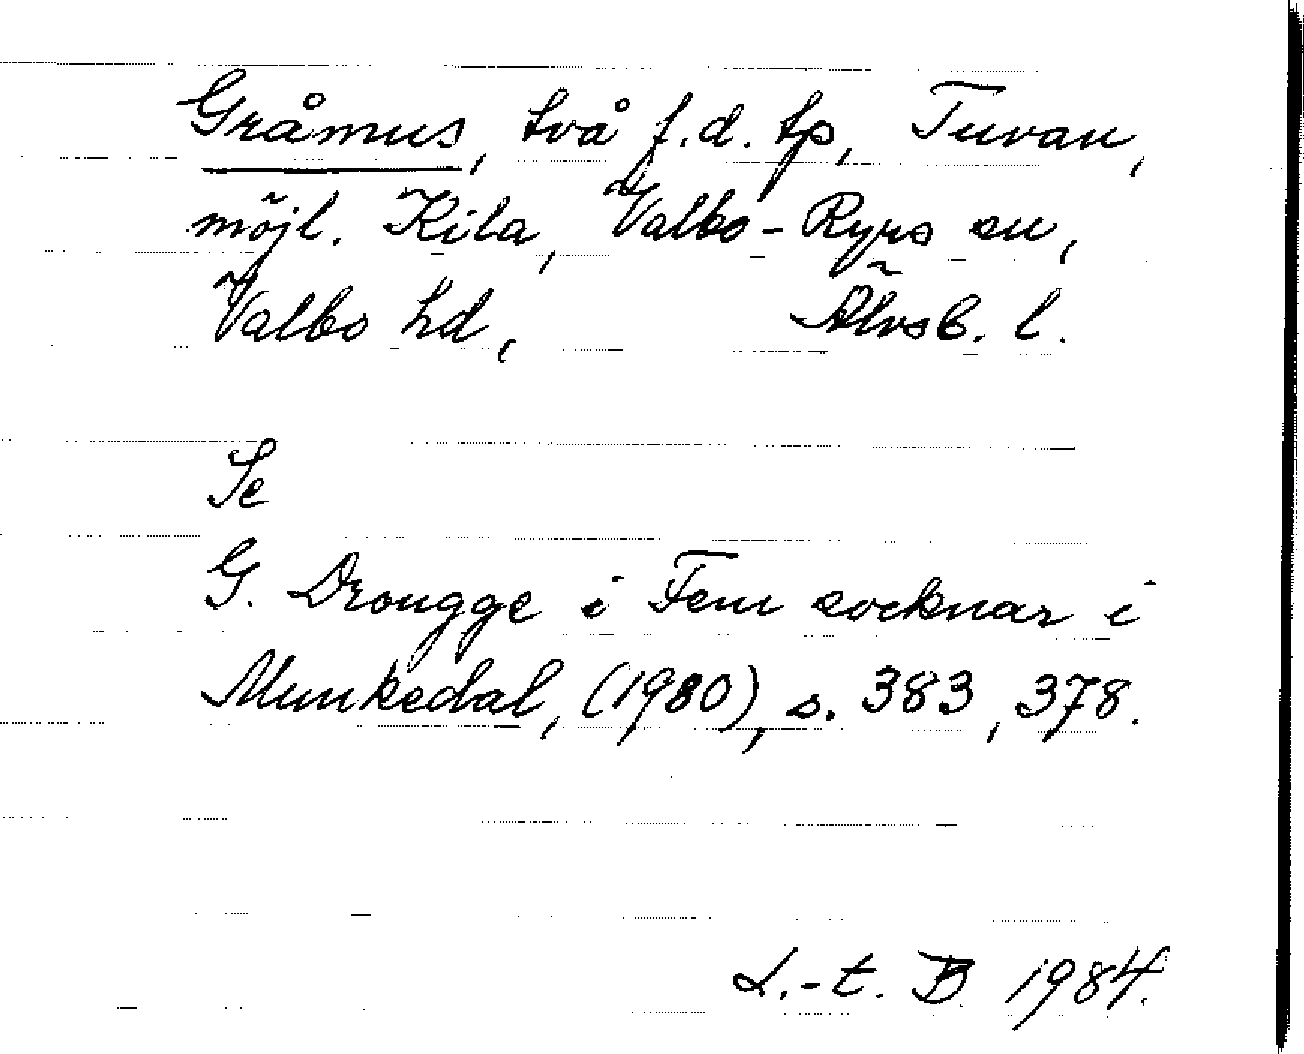 Gråmus, två f.d. tp, Tuvan,
möjl. Kila, Valbo-Ryrs sn,
Valbo hd, Älvsb. l.
Se
G. Drougge i Fem socknar i
Munkedal, (1980), s. 383, 378.
L.-t. B. 1984.